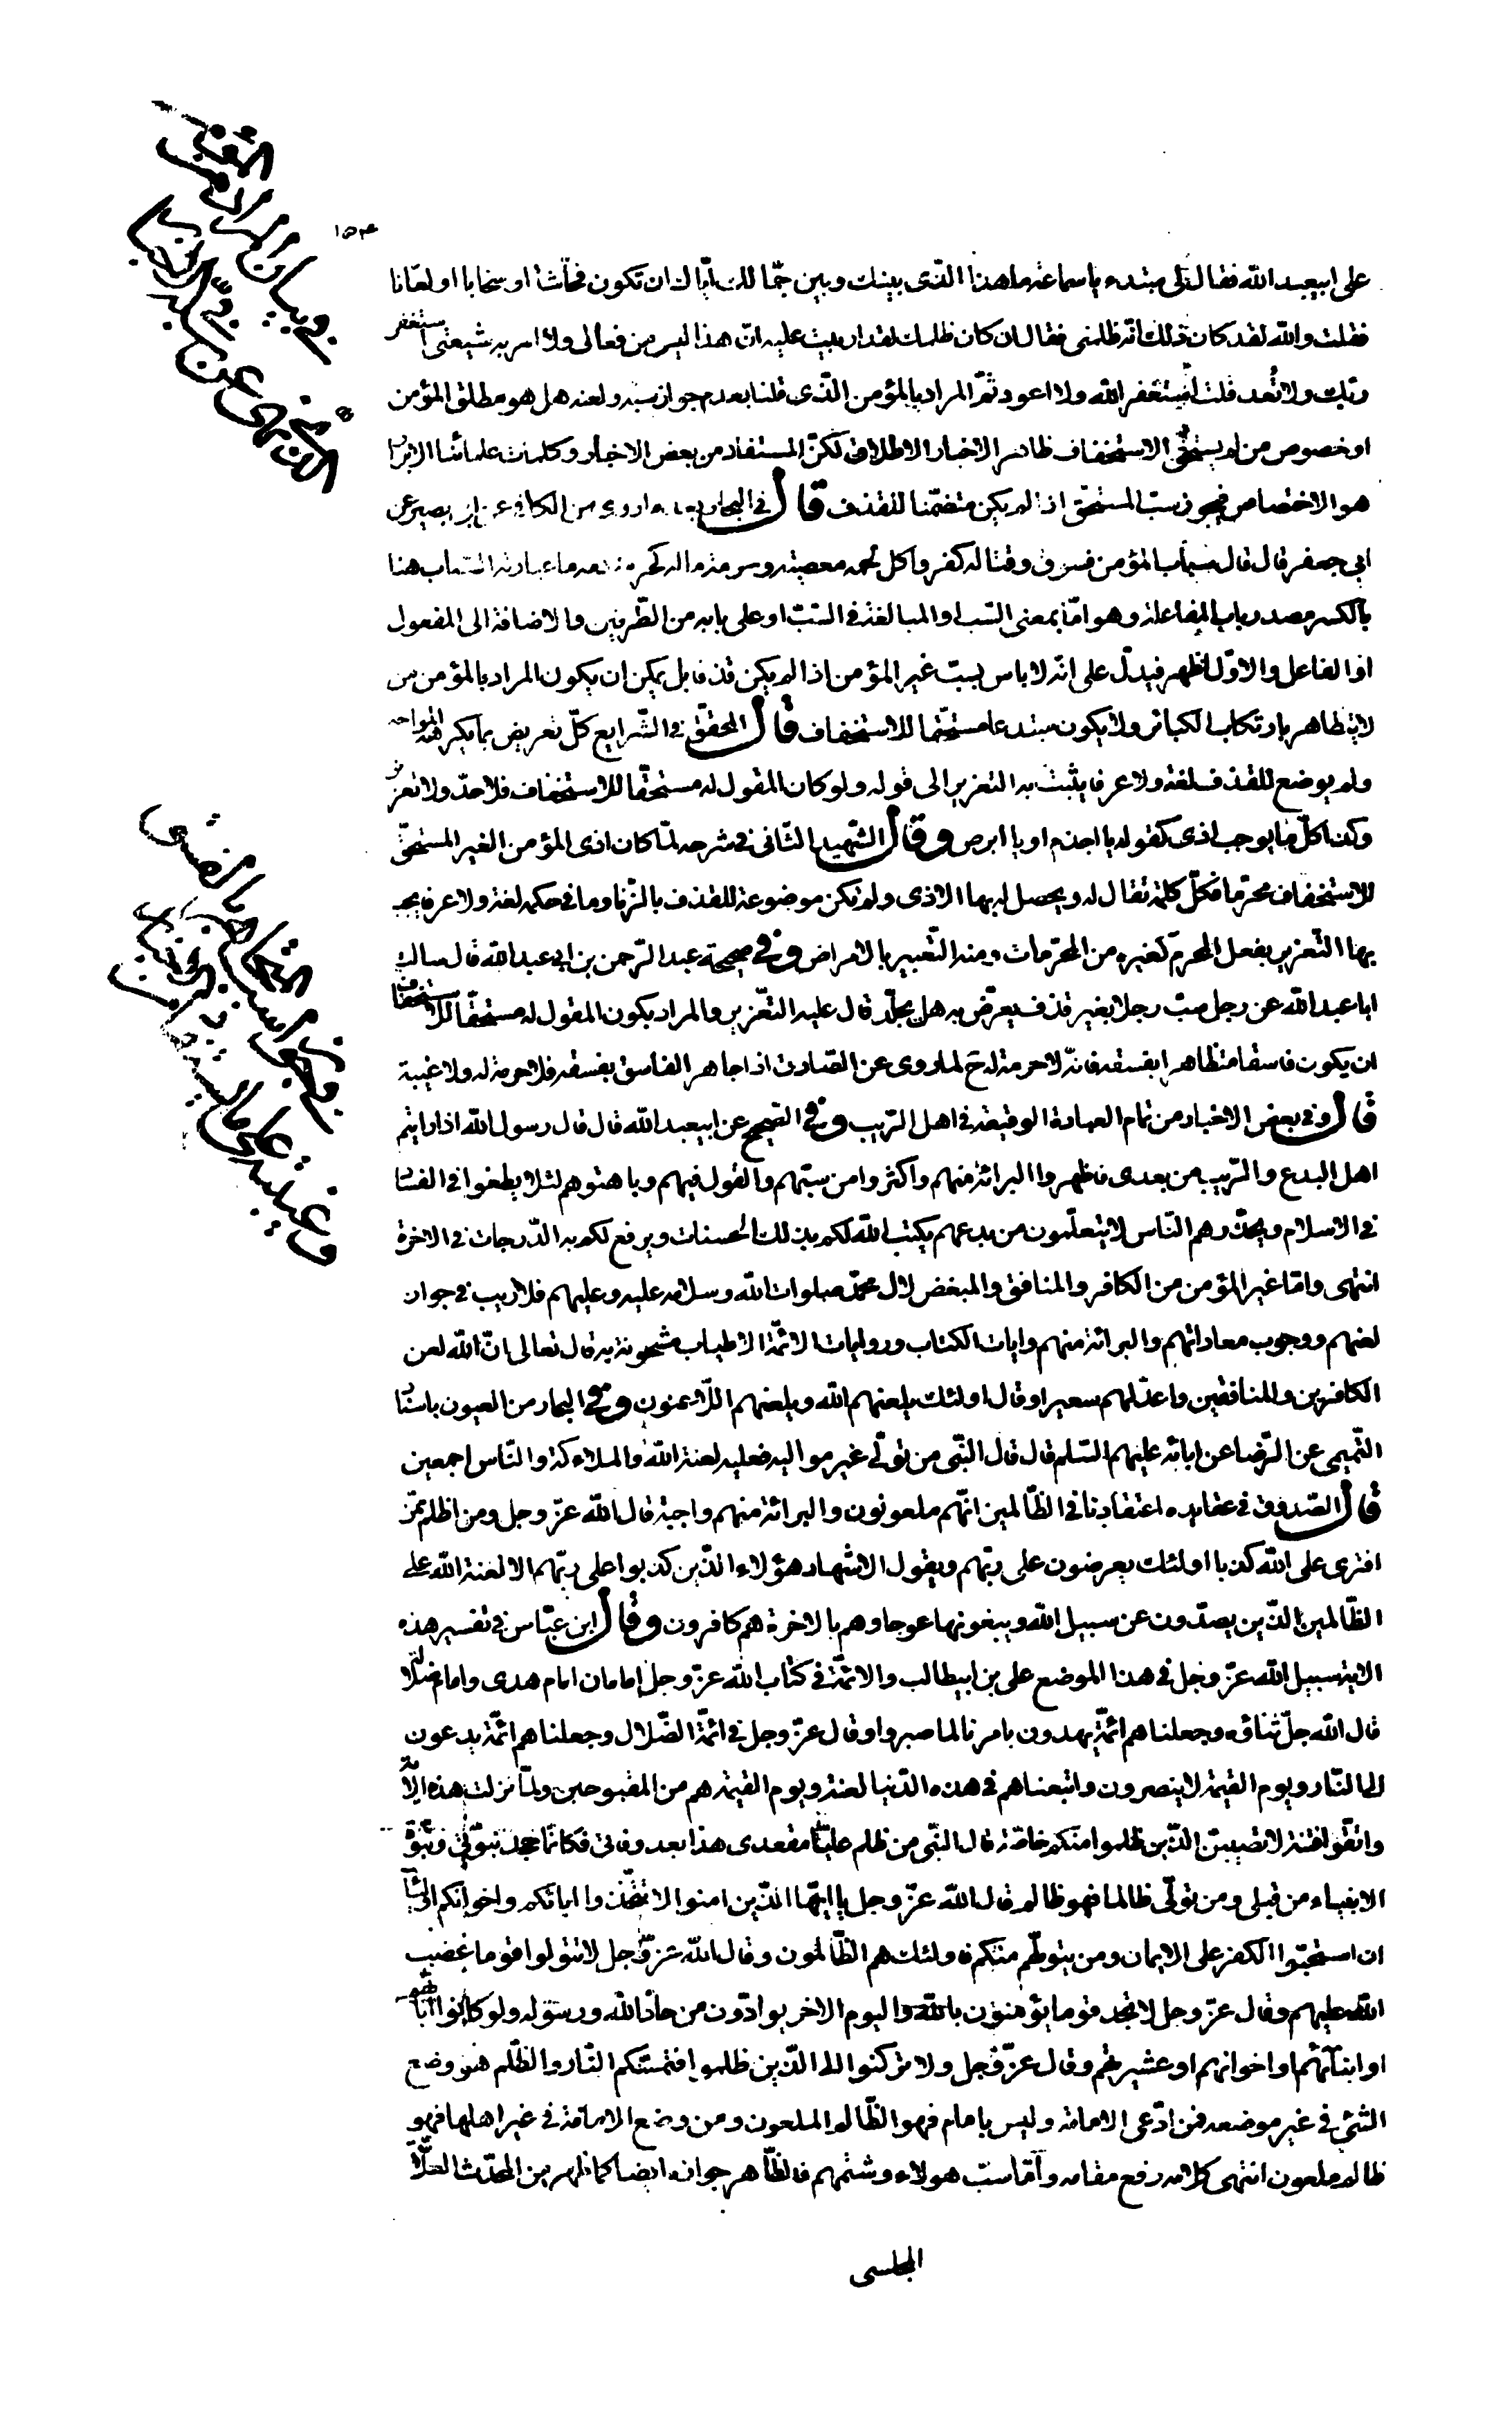 ١٥٤
على ابيعبد الله فقال لى مبتدء ياسماعة ما هذا الذى بينك وبين جمّالك ايّاك ان تكون فحّاشا او سخّابا او لعّانا
فقلت والله لقد كان ذلك انّه ظلمنى فقال ان كان ظلمك لقد اربيت عليه انّ هذا ليس من فعالى ولا امر به شيعتى استغفر
ربّك ولا تُعد قلت استغفر الله ولا اعود ثمّ المراد بالمؤمن الّذى قلنا بعدم جواز سبّه ولعنه هل هو مطلق المؤمن
او خصوص من لم يستحق الاستخفاف ظاهر الاخبار الاطلاق لكنّ المستفاد من بعض الاخبار وكلمات علمائنا الابرار
هو الاختصاص فيجوز سبّ المستحقّ اذا لم يكن متضمّنا للقذف قال فى البحار بعد ما روى من الكافى عن ابى بصير عن
ابى جعفر قال قال سباب المؤمن فسوق وقتاله كفر واكل لحمه معصية وحرمة ماله كحرمة دمه ما عبارته السباب هنا
بالكسر مصدر باب المفاعلة وهو امّا بمعنى السّب او المبالغة فى السّبّ او على بابه من الطّرفين والاضافة الى المفعول
او الفاعل والاوّل اظهر فيدلّ على انّه لا باس بسبّ غير المؤمن اذا لم يكن قذفا بل يمكن ان يكون المراد بالمؤمن من
لا يتظاهر بارتكاب الكبائر ولا يكون مبتدعا مستحقّا للاستخفاف قال المحقّق فى الشّرايع كلّ تعريض بما يكرهه المواجه
ولم يوضع للقذف لغة ولا عرفا يثبت به التعزير الى قوله ولو كان المقول له مستحقّا للاستخفاف فلا حدّ ولا تعزير
وكذا كلّ ما يوجب اذى كقوله يا اجذم او يا ابرص وقال الشّهيد الثّانى فى شرحه لمّا كان اذى المؤمن الغير المستحقّ
للاستخفاف محرّما فكلّ كلمة تقال له ويحصل له بها الاذى ولم تكن موضوعة للقذف بالزّنا وما فى حكمه لغة ولا عرفا يجب
بها التّعزير بفعل المحرّم كغيره من المحرّمات ومنه التّعيير بالامراض وفى صحيحة عبد الرّحمن بن ابى عبد الله قال سالت
ابا عبد الله عن رجل سبّ رجلا بغير قذف يعرّض به هل يجلّد قال عليه التّعزير والمراد بكون المقول له مستحقّا للاستخفاف
ان يكون فاسقا متظاهرا بفسقه فانّه لا حرمة له ح لما روى عن الصّادق اذا جاهر الفاسق بفسقه فلا حرمة له ولا غيبة
قال وفى بعض الاخبار من تمام العبادة الوقيعة فى اهل الرّيب وفى الصّحيح عن ابيعبد الله قال قال رسول الله اذا رايتم
اهل البدع والرّيب من بعدى فاظهروا البرائة منهم واكثروا من سبّهم والقول فيهم وباهتوهم لئلا يطغوا فى الفساد
فى الاسلام ويحذرهم النّاس لا يتعلّمون من بدعهم يكتب الله لكم بذلك الحسنات ويرفع لكم به الدّرجات فى الاخرة
انتهى وامّا غير المؤمن من الكافر والمنافق والمبغض لال محمّد صلوات الله وسلامه عليه وعليهم فلا ريب فى جواز
لعنهم ووجوب معاداتهم والبرائة منهم وايات الكتاب وروايات الائمّة الاطياب مشحونة به قال تعالى انّ الله لعن
الكافرين والمنافقين واعدّ لهم سعيرا وقال اولئك يلعنهم الله ويلعنهم اللّاعنون وفى البحار من العيون باسناد
التّميمى عن الرّضا عن ابائه عليهم السّلم قال قال النّبى من تولّى غير مواليه فعليه لعنة الله والملائكة والنّاس اجمعين
قال الصّدوق فى عقايده اعتقادنا فى الظّالمين انّهم ملعونون والبرائة منهم واجبة قال الله عزّ وجل ومن اظلم ممّن
افترى على الله كذبا اولئك يعرضون على ربّهم ويقول الاشهاد هؤلاء الذّين كذبوا على ربّهم الا لعنة الله على
الظّالمين الذّين يصدّون عن سبيل الله ويبغونها عوجا وهم بالاخرة هم كافرون وقال ابن عبّاس فى تفسير هذه
الاية سبيل الله عزّ وجل فى هذا الموضع على بن ابيطالب والائمّة فى كتاب الله عزّ وجل امامان امام هدى وامام ضلالة
قال الله جلّ ثناؤه وجعلناهم ائمّة يهدون بامرنا لما صبروا وقال عزّ وجل فى ائمّة الضّلال وجعلناهم ائمّة يدعون
الى النّار ويوم القيمة لا ينصرون واتبعناهم فى هذه الدّنيا لعنة ويوم القيمة هم من المقبوحين ولمّا نزلت هذه الاية
واتّقوا فتنة لا تصيبنّ الذّين ظلموا منكم خاصّة قال النّبى من ظلم عليّا مقعدى هذا بعد وفاتى فكانّما جحد نبوّتى ونبوّة
الانبياء من قبلى ومن تولّى ظالما فهو ظالم قال الله عزّ وجل يا ايّها الذّين امنوا لا تتّخذوا ابائكم واخوانكم اولياء
ان استحبّوا الكفر على الايمان ومن يتولّهم منكم فاولئك هم الظّالمون وقال الله عزّ وجل لا تتولوا قوما غضب
الله عليهم وقال عزّ وجل لا تجد قوما يؤمنون بالله واليوم الاخر يوادّون من حادّ الله ورسوله ولو كانوا آبائهم
او ابنآئهم او اخوانهم او عشيرتهم وقال عزّ وجل ولا تركنوا الى الذّين ظلموا فتمسّكم النّار والظّلم هو وضع
الشّئ فى غير موضعه فمن ادّعى الامامة وليس بامام فهو الظّالم الملعون ومن وضع الامامة فى غير اهلها فهو
ظالم ملعون انتهى كلامه رفع مقامه وامّا سبّ هولاء وشتمهم فالظّاهر جوازه ايضا كما يظهر من المحدّث العلّامة
المجلسى